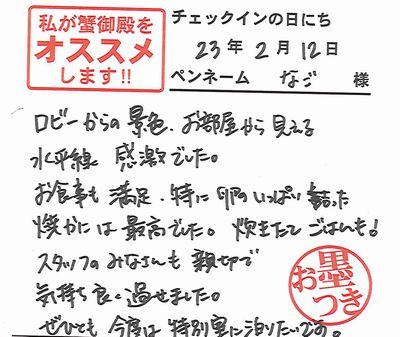 私が蟹御殿を
オススメ
します!!
チェックインの日にち
23年2月12日
ペンネーム なご 様
ロビーからの景色、お部屋から見える
水平線 感激でした。
お食事も満足、特に卵のいっぱい詰った
焼かには最高でした。炊きたてごはんも!
スタッフのみなさんも親切で
気持ち良く過せました。
ぜひとも今度は特別室に泊りたいです。
お墨つき